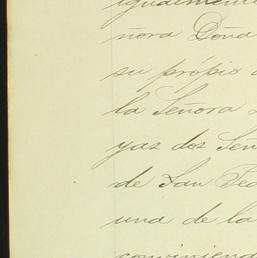 igualmente
ñora Doña
su própio
la Señora
yas dos Señ
de San Ped
una de la
conviniend